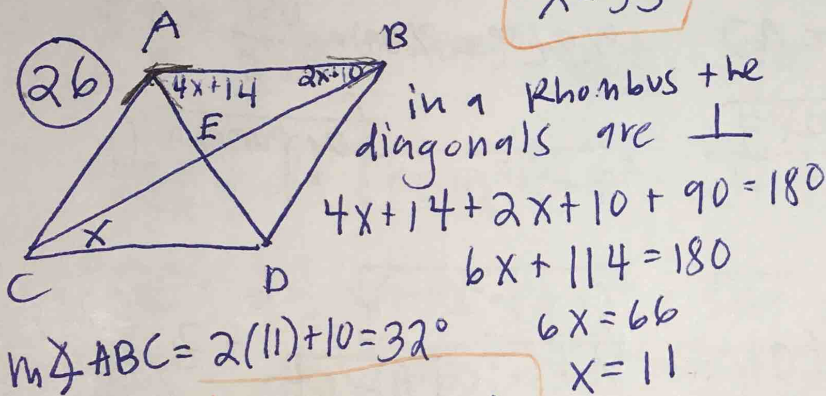 26
A
B
4x+14
2x+10
E
x
C
D
in a Rhombus the
diagonals are ⊥
4x+14+2x+10+90=180
6x+114=180
6x=66
x=11
m∡ABC=2(11)+10=32°